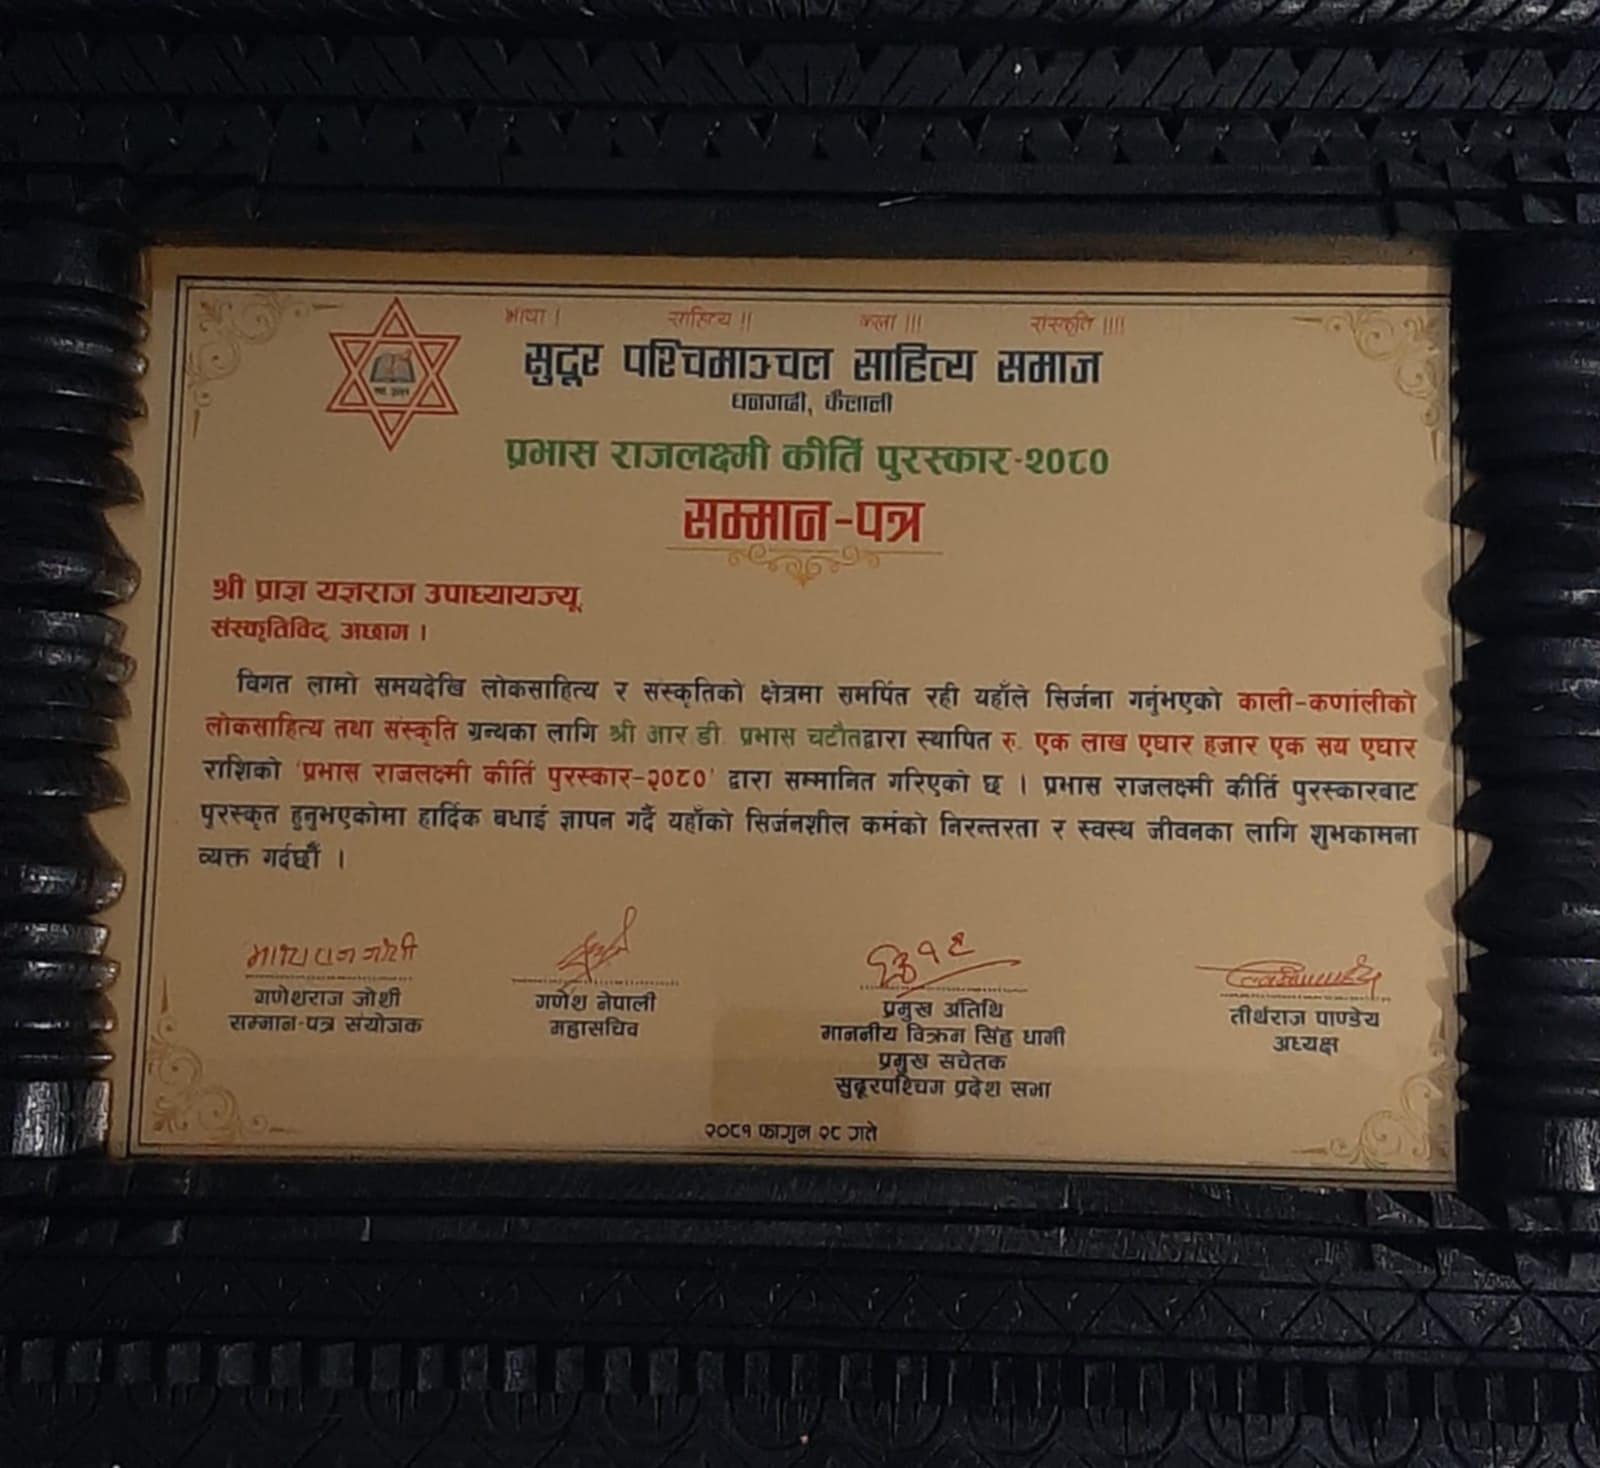 भाषा । साहित्य ।। कला ।।। संस्कृति ।।।।
सुदूर पश्चिमाञ्चल साहित्य समाज
धनगढी, कैलाली
प्रभास राजलक्ष्मी कीर्ति पुरस्कार-२०८०
सम्मान-पत्र
श्री प्राज्ञ यज्ञराज उपाध्यायज्यू,
संस्कृतिविद्, अछाम ।
विगत लामो समयदेखि लोकसाहित्य र संस्कृतिको क्षेत्रमा समर्पित रही यहाँले सिर्जना गर्नुभएको काली-कर्णालीको
लोकसाहित्य तथा संस्कृति ग्रन्थका लागि श्री आर.डी. प्रभास चटौतद्वारा स्थापित रु. एक लाख एघार हजार एक सय एघार
राशिको 'प्रभास राजलक्ष्मी कीर्ति पुरस्कार-२०८०' द्वारा सम्मानित गरिएको छ । प्रभास राजलक्ष्मी कीर्ति पुरस्कारबाट
पुरस्कृत हुनुभएकोमा हार्दिक बधाई ज्ञापन गर्दै यहाँको सिर्जनशील कर्मको निरन्तरता र स्वस्थ जीवनका लागि शुभकामना
व्यक्त गर्दछौं ।
गणेशराज जोशी
सम्मान-पत्र संयोजक
गणेश नेपाली
महासचिव
प्रमुख अतिथि
माननीय विक्रम सिंह धामी
प्रमुख सचेतक
सुदूरपश्चिम प्रदेश सभा
तीर्थराज पाण्डेय
अध्यक्ष
२०८१ फागुन २८ गते